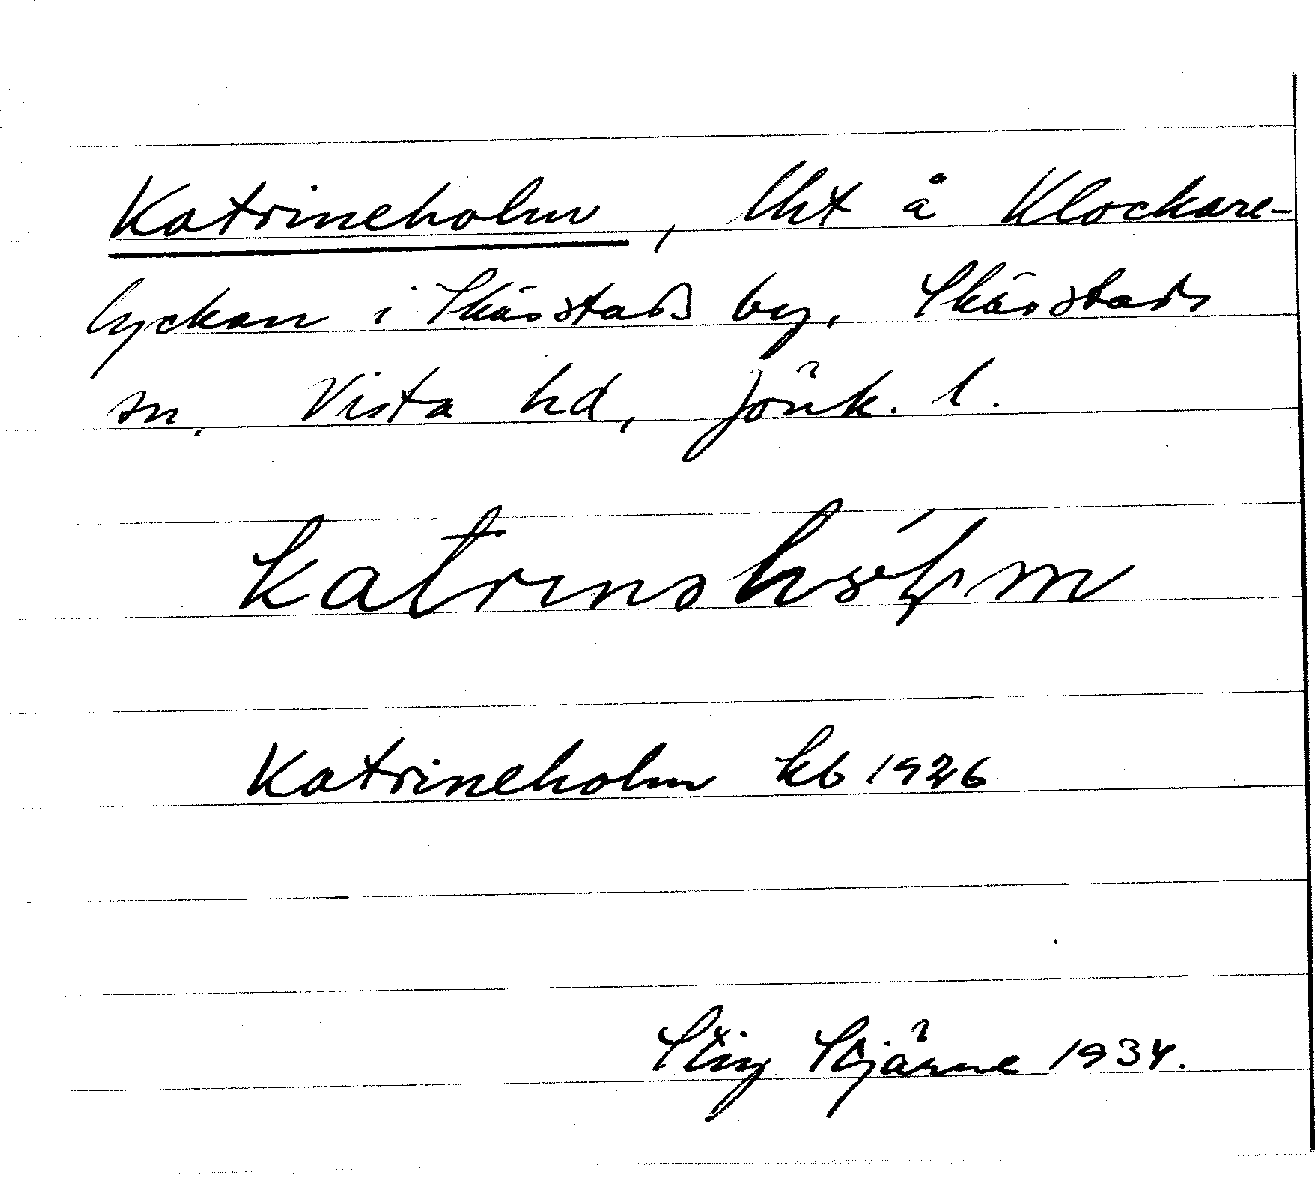 Katrineholm, lht å Klockare-
lyckan i Skärstads by, Skärstads
sn, Vista hd, Jönk. l.
Katrineholm kb 1926
Stig Stjärne 1934.